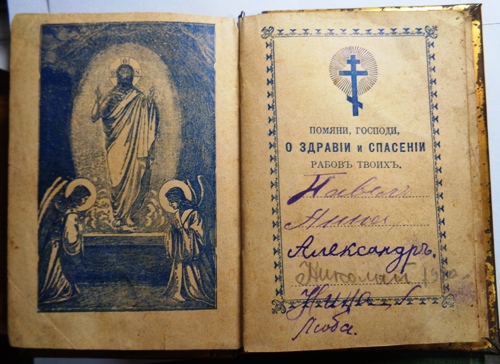 ПОМЯНИ, ГОСПОДИ,
О ЗДРАВІИ и СПАСЕНІИ
РАБОВЪ ТВОИХЪ.
Павелъ
Анна
Александръ.
Николай
Люба.